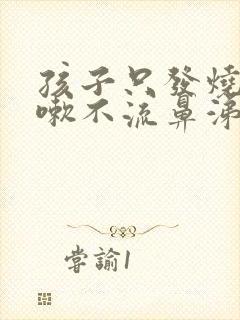 孩子只發燒
嗽不流鼻涕
嘗諭1